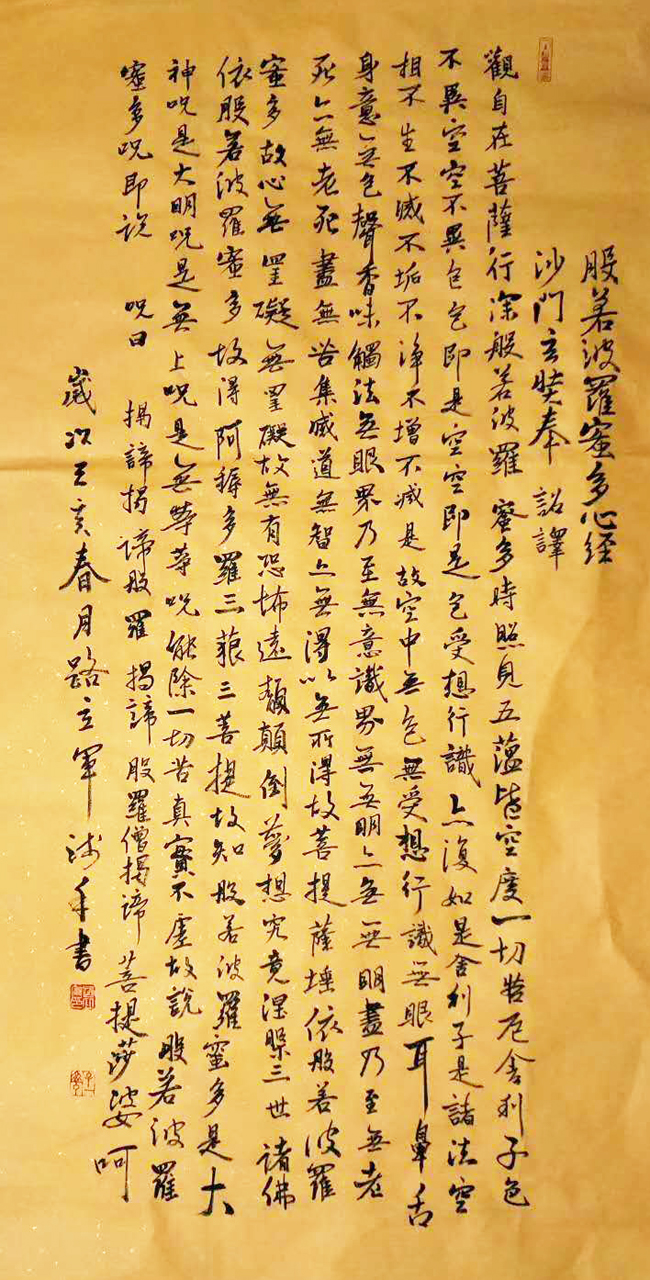 般若波羅蜜多心经
沙門玄奘奉 詔譯
觀自在菩薩行深般若波羅蜜多時照見五蘊皆空度一切苦厄舍利子色
不異空空不異色色即是空空即是色受想行識亦復如是舍利子是諸法空
相不生不滅不垢不淨不增不減是故空中無色無受想行識無眼耳鼻舌
身意無色聲香味觸法無眼界乃至無意識界無無明亦無無明盡乃至無老
死亦無老死盡無苦集滅道無智亦無得以無所得故菩提薩埵依般若波羅
蜜多故心無罣礙無罣礙故無有恐怖遠離顛倒夢想究竟涅槃三世諸佛
依般若波羅蜜多故得阿耨多羅三藐三菩提故知般若波羅蜜多是大
神呪是大明呪是無上呪是無等等呪能除一切苦真實不虛故說般若波羅
蜜多呪即說 呪曰 揭諦揭諦般羅揭諦般羅僧揭諦菩提莎婆呵
歲次己亥春月路立軍沐手書